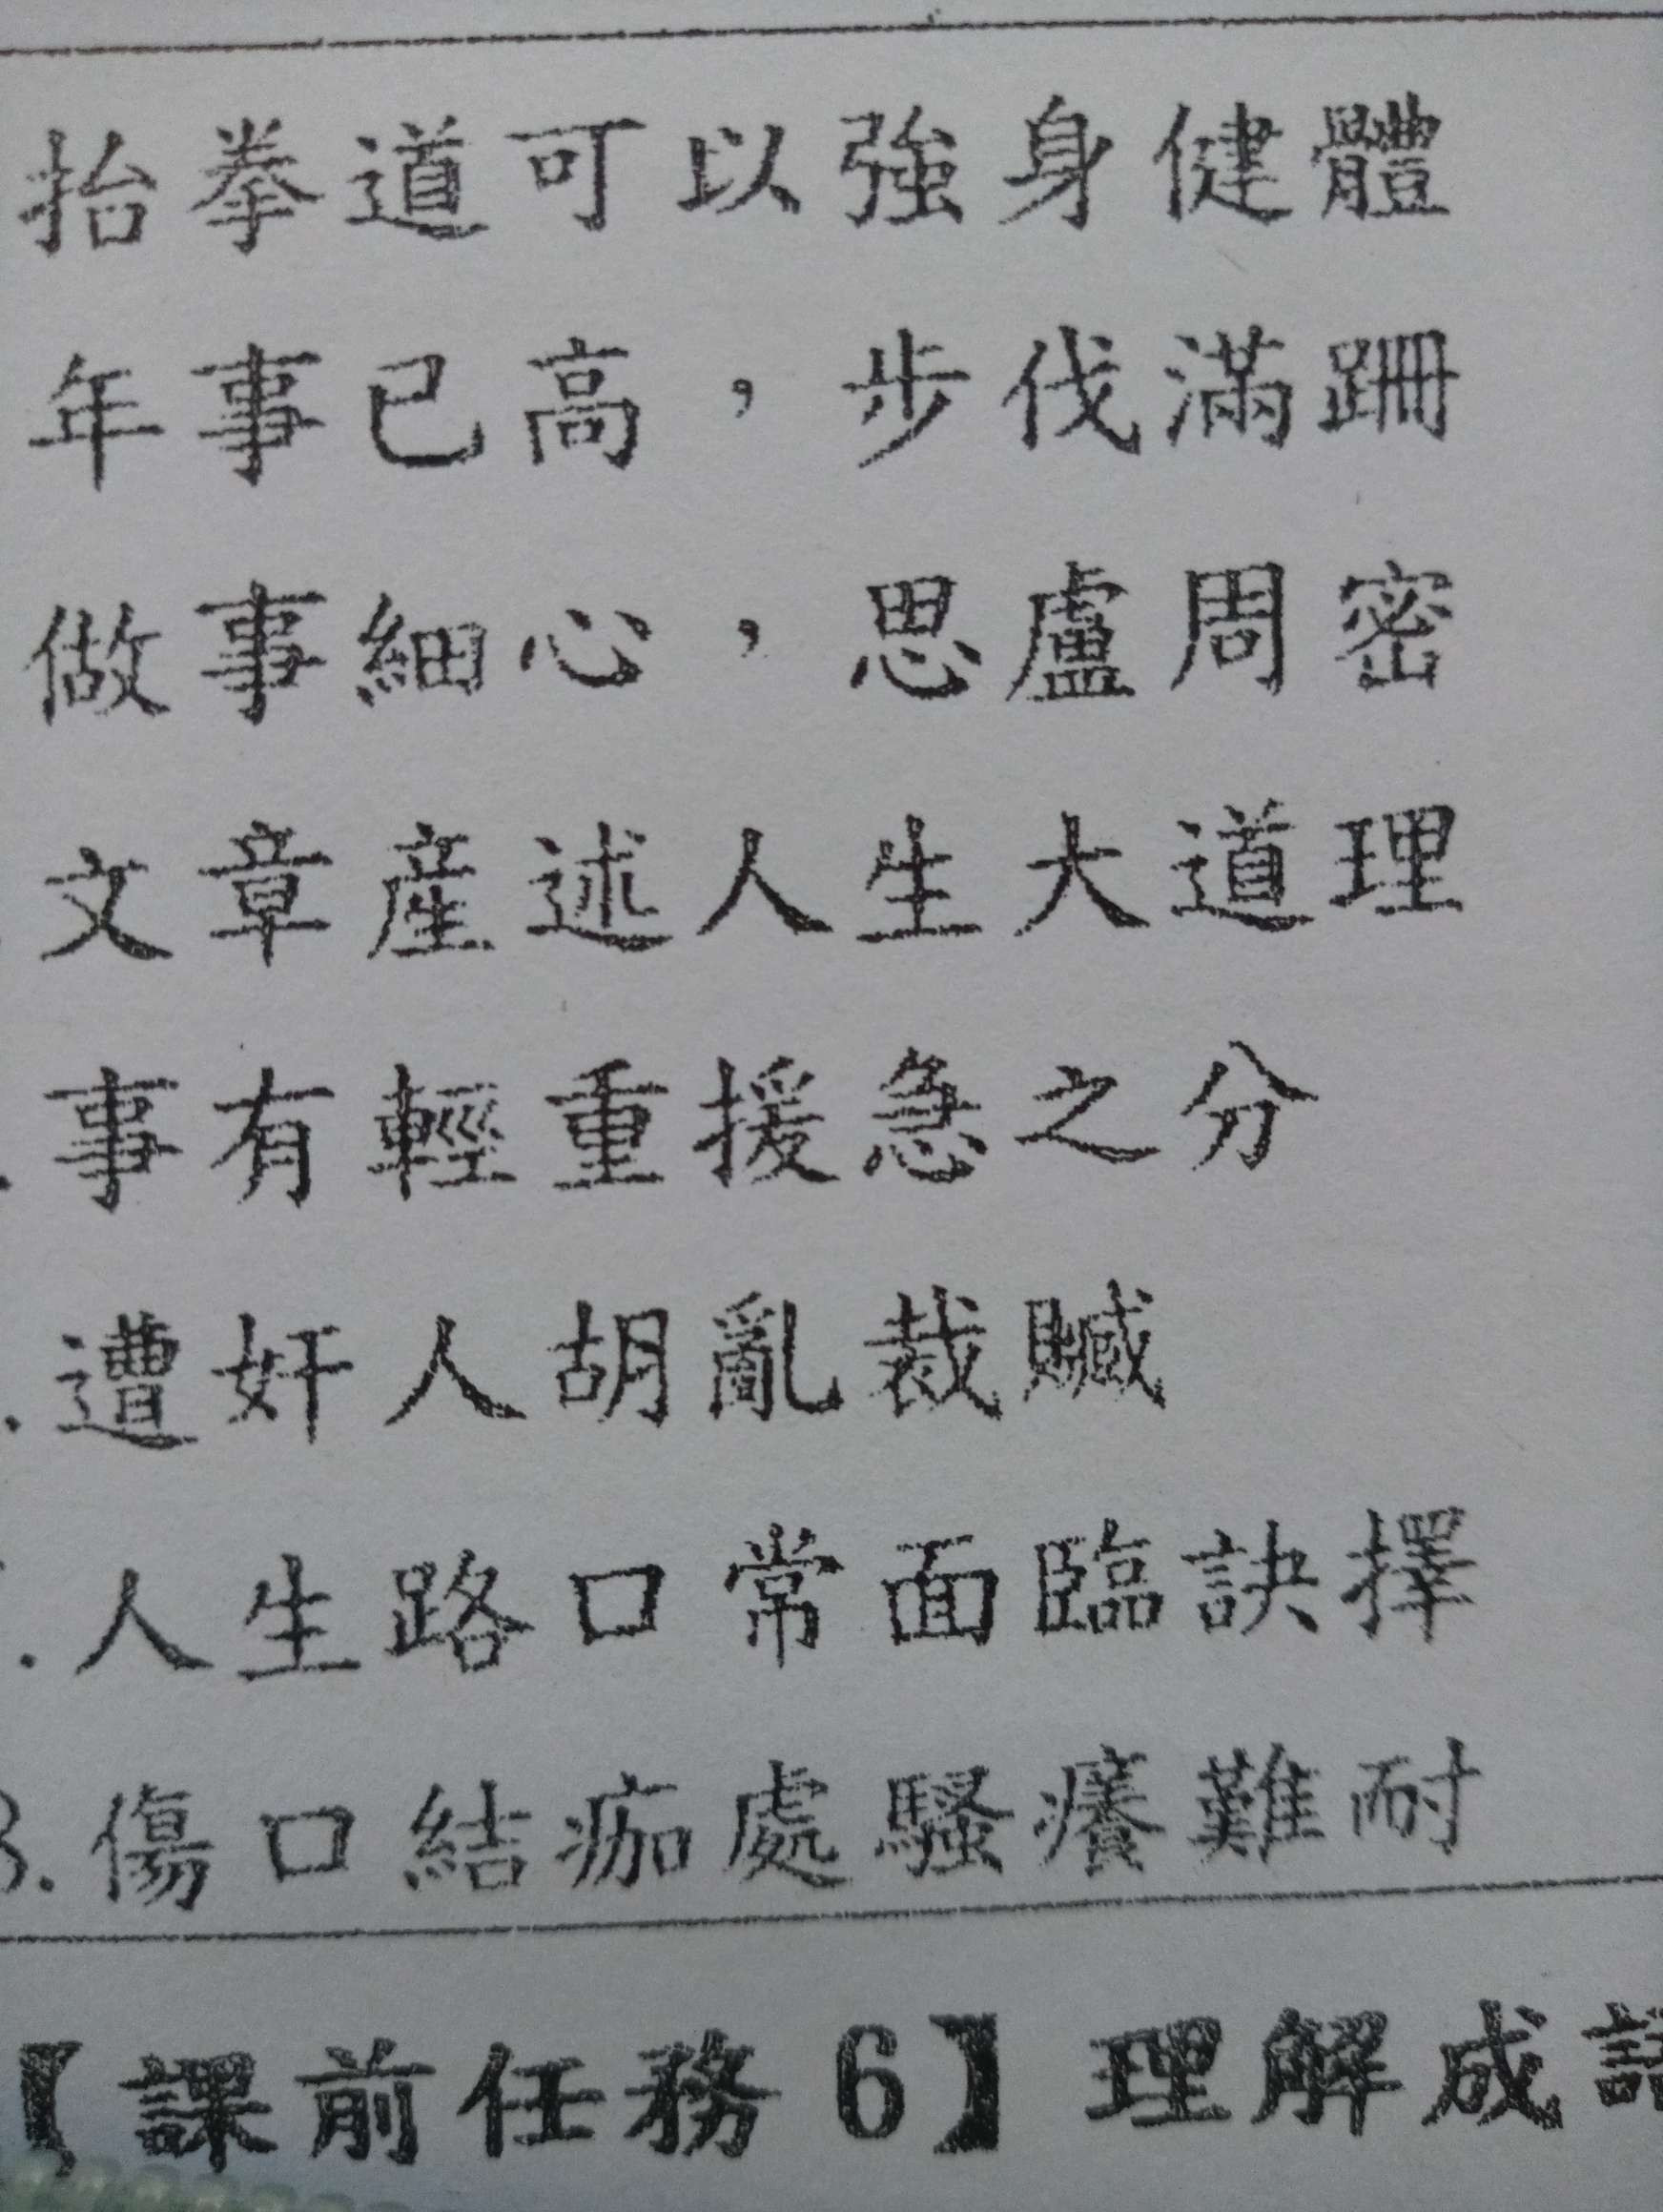 抬拳道可以強身健體
年事已高，步伐滿跚
做事細心，思盧周密
文章產述人生大道理
事有輕重援急之分
遭奸人胡亂裁贓
人生路口常面臨訣擇
8.傷口結痂處騷癢難耐
【課前任務6】理解成